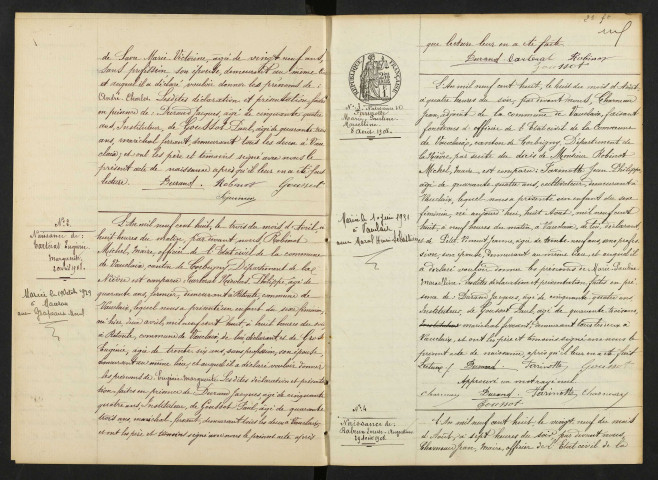 de Save Marie Victorine, âgée de vingt neuf ans,
sans profession son épouse, demeurant au même lieu
et auquel il a déclaré vouloir donner les prénoms de
André Charles. Les dites déclaration et présentation faites
en présence de : Durand Jacques, âgé de cinquante quatre
ans, Instituteur, de Goussot Paul, âgé de quarante trois
ans, maréchal ferrant, demeurant tous les deux à Vau
claix ; et ont les père et témoins signé avec nous le
présent acte de naissance après qu'il leur en a été fait
lecture. Durand Robinot Goussot
N° 2
Naissance de :
Eugénie
Marguerite
2 avril 1908
Mariée le 1929
à
avec
L'An mil neuf cent huit, le trois du mois d'Avril, à
huit heures du matin, par devant nous Robinot
Michel, Maire, officier de l'Etat civil de la commune
de Vauclaix, canton de Corbigny, Département de la
Nièvre est comparu Philippe, âgé de
quarante ans, fermier, demeurant à commune de
Vauclaix, lequel nous a présenté un enfant du sexe féminin,
né hier deux avril, mil neuf cent huit à huit heures du soir
à commune de Vauclaix, de lui déclarant et de
Eugénie, âgée de trente six ans, sans profession, son épouse
demeurant au même lieu, et auquel il a déclaré vouloir donner
les prénoms de Eugénie Marguerite. Les dites déclaration et présenta
tion faites en présence de Durand Jacques, âgé de cinquante
quatre ans, Instituteur, de Goussot Paul, âgé de quarante
trois ans, maréchal ferrant, demeurant tous les deux à Vauclaix,
et ont les père et témoins signé avec nous le présent acte après
que lecture leur en a été faite
Durand Robinot
Goussot
RÉPUBLIQUE FRANÇAISE
N° 3 Naissance de
Marie Pauline
8 Août 1908
Mariée le 1er juin 1931
à Vauclaix
avec Marcel Henri
L'An mil neuf cent huit, le huit du mois d'Août,
à quatre heures du soir, par devant nous, Charmeau
Jean, adjoint de la commune de Vauclaix, faisant
fonctions d'officier de l'Etat civil de la Commune
de Vauclaix, canton de Corbigny, Département de
la Nièvre par suite du décès de Monsieur Robinot
Michel, Maire, est comparu : Jean Philippe
âgé de quarante quatre ans, cultivateur, demeurant à
Vauclaix, lequel nous a présenté un enfant du sexe
féminin, né aujourd'hui, huit Août, mil neuf cent
huit, à neuf heures du matin, à Vauclaix, de lui, déclarant
et de Jeanne, âgée de trente neuf ans, sans profes
sion, son épouse, demeurant au même lieu, et auquel il
a déclaré vouloir donner les prénoms de Marie Pauline
Les dites déclaration et présentation, faites en pré
sence de : Durand Jacques, âgé de cinquante quatre ans
Instituteur, de Goussot Paul, âgé de quarante trois ans,
maréchal ferrant, demeurant tous les deux à
Vauclaix, et ont les père et témoins signé avec nous le
présent acte de naissance, après qu'il leur en a été fait
lecture. Durand Goussot
Approuvé un mot rayé nul
Durand
Goussot
N° 4
Naissance de :
Augustine
29 Août 1908
L'An mil neuf cent huit, le vingt neuf du mois
d'Août, à sept heures du soir, par devant nous,
Charmeau Jean, Maire, officier de l'Etat civil de la